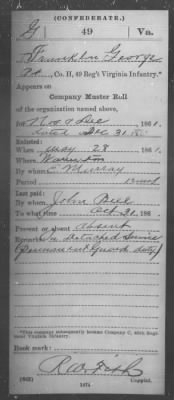 (CONFEDERATE.)
G 49 Va.
Franklin George
Co. H, 49 Reg't Virginia Infantry.*
Appears on
Company Muster Roll
of the organization named above,
for Nov & Dec 186
dated Dec 31 186
Enlisted:
When May 28 186
Where
By whom Murray
Period
Last paid:
By whom John Bell
To what time Oct 31 186
Present or absent Absent
Remarks: On Detached Service
(Permanent Guard duty)
*This company subsequently became Company C, 49th Regiment Virginia Infantry.
Book mark:
(642)
Copyist.